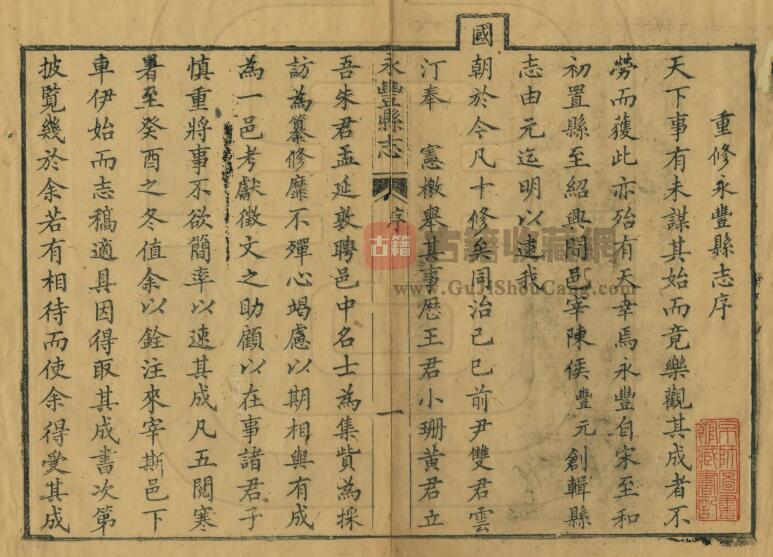 重修永豐縣志序
天下事有未謀其始而竟樂觀其成者不
勞而獲此亦殆有天幸焉永豐自宋至和
初置縣至紹興間邑宰陳侯豐元創輯縣
志由元迄明以逮我
國朝於今凡十修矣同治己巳前尹雙君雲
汀奉 憲檄舉其事歷王君小珊黃君立
永豐縣志 序 一
吾朱君孟延敦聘邑中名士為集貲為採
訪為纂修靡不殫心竭慮以期相與有成
為一邑考獻徵文之助顧以在事諸君子
慎重將事不欲簡率以速其成凡五閱寒
暑至癸酉之冬值余以銓注來宰斯邑下
車伊始而志稿適具因得取其成書次第
披覽幾於余若有相待而使余得受其成
古籍
古籍收藏網
www.GuJiShouCang.com